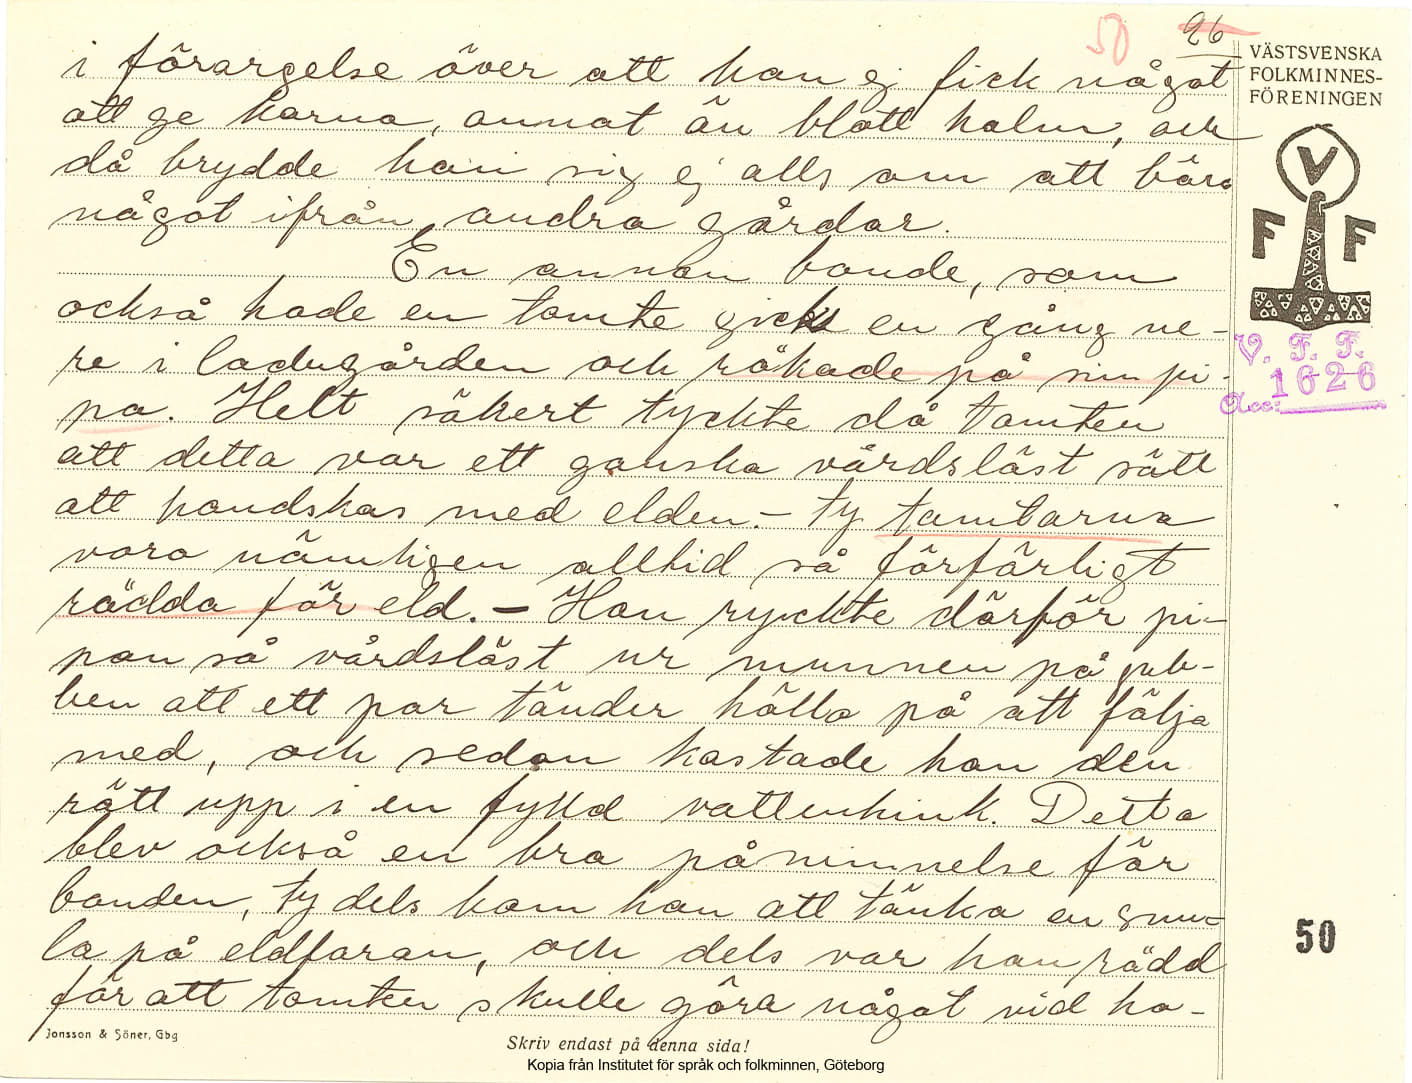 50 26
VÄSTSVENSKA
FOLKMINNES-
FÖRENINGEN
V
F F
V. F. F.
Acc: 1626
i förargelse över att han ej fick något
att ge korna, annat än blott halm, och
då brydde han sig ej alls om att bära
något ifrån andra gårdar.
En annan bonde, som
också hade en tomte gick en gång ne-
re i ladugården och rökade på sin pi-
pa. Helt säkert tyckte då tomten
att detta var ett ganska vårdslöst sätt
att handskas med elden. - ty tomtarna
voro nämligen alltid så förfärligt
rädda för eld. - Han ryckte därför pi-
pan så vårdslöst ur munnen på gub-
ben att ett par tänder höllo på att följa
med, och sedan kastade han den
rätt upp i en fylld vattenhink. Detta
blev också en bra påminnelse för
bonden, ty dels kom han att tänka en smu-
la på eldfaran, och dels var han rädd
för att tomten skulle göra något vid ho-
50
Jonsson & Söner, Gbg
Skriv endast på denna sida!
Kopia från Institutet för språk och folkminnen, Göteborg